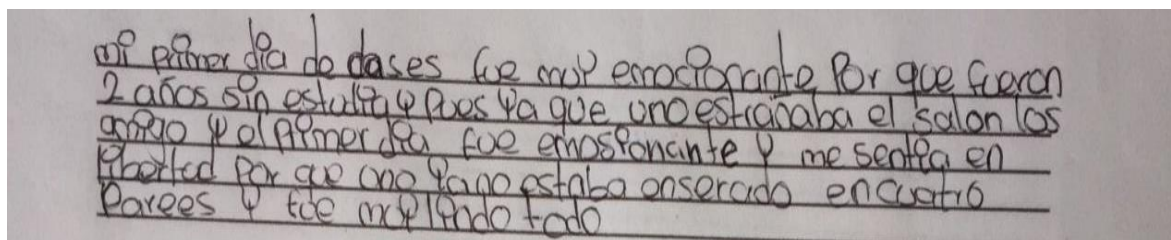 mi primer dia de clases fue muy emocionante Por que fueron
2 años sin estudia y Pues ya que uno estrañaba el salon los
amigo y el Primer dia fue emosionante y me sentia en
libertad Por que uno ya no estaba enserado en cuatro
Parees y fue muy lindo todo